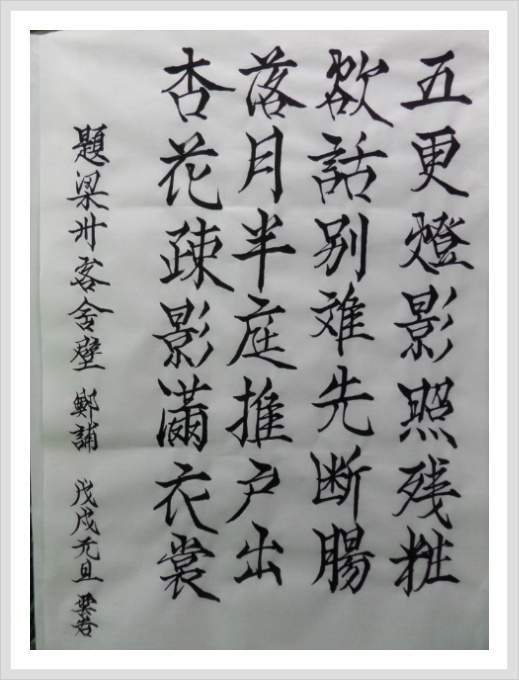 五更燈影照残粧
欲話别離先断腸
落月半庭推戶出
杏花疎影滿衣裳
題梁州客舍壁 鄭誧 戊戌元旦